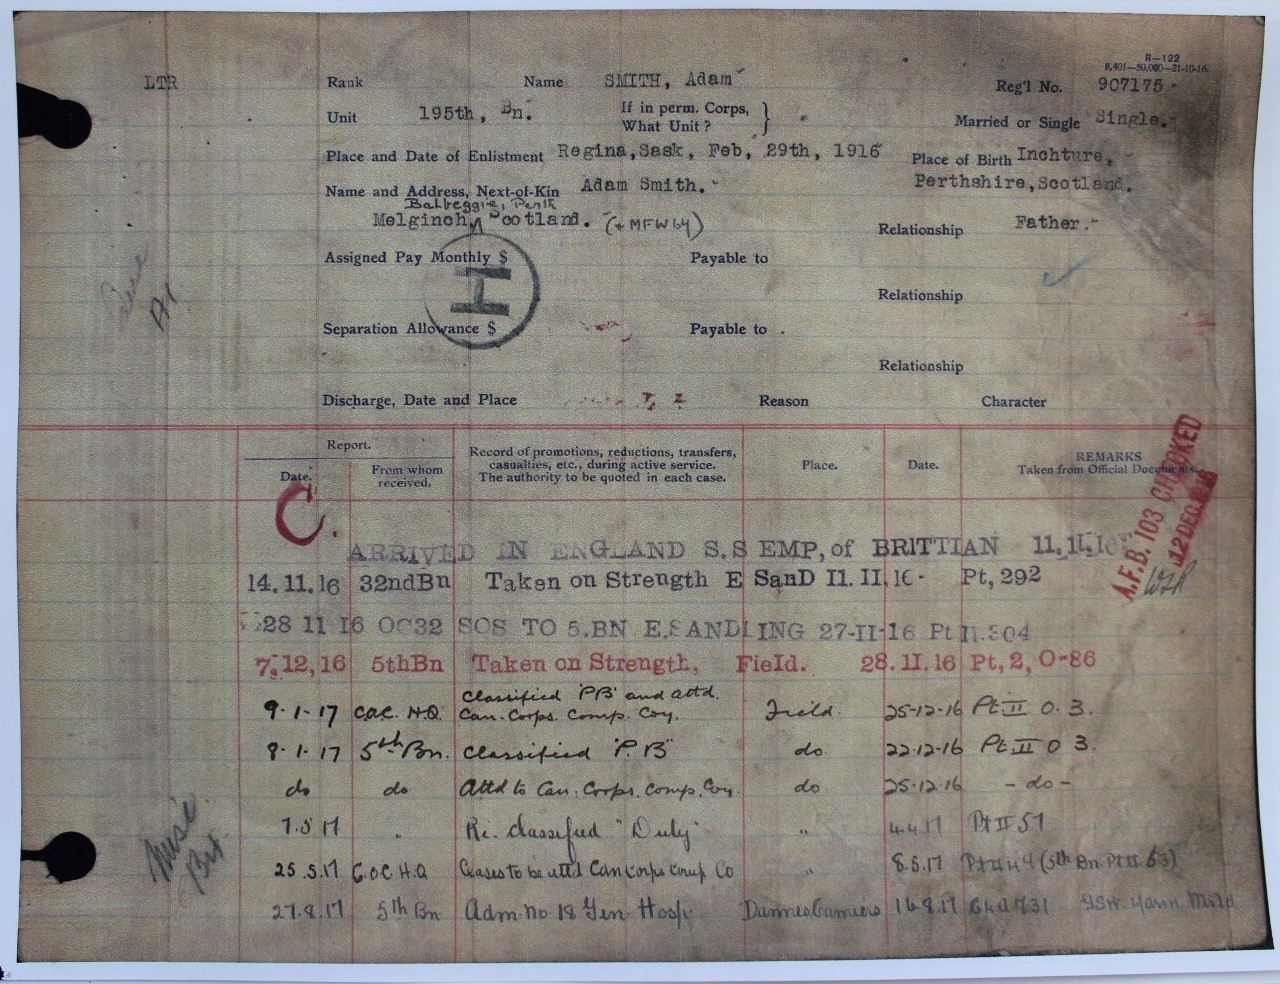 R—122
8,401—50,000—21-10-16.
LTR
Rank Name SMITH, Adam Reg'l No. 907175
Unit 195th, Bn. If in perm. Corps, What Unit? Married or Single Single.
Place and Date of Enlistment Regina, Sask, Feb, 29th, 1916 Place of Birth Inchture,
Perthshire, Scotland.
Name and Address, Next-of-Kin Adam Smith.
Balbeggie, Perth
Melginch, Scotland. (+ MFW64) Relationship Father.
Assigned Pay Monthly $ Payable to
H
Relationship
Separation Allowance $ Payable to
Relationship
Discharge, Date and Place Reason Character
Report.
Date. From whom received. Record of promotions, reductions, transfers, casualties, etc., during active service. The authority to be quoted in each case. Place. Date. REMARKS Taken from Official Documents.
C.
A.F.B. 103 CHECKED
12 DEC
ARRIVED IN ENGLAND S.S EMP, of BRITTIAN 11.11.16
14.11.16 32ndBn Taken on Strength E SanD II.II,16 Pt, 292
28 11 16 OC32 SOS TO 5.BN E.SANDLING 27-II-16 Pt II.304
7.12,16 5thBn Taken on Strength, Field. 28.II.16 Pt,2, O-86
9-1-17 C.O.C. H.Q. Classified 'PB' and attd. Can. Corps. Comp. Coy. Field. 25-12-16 Pt II O. 3.
8-1-17 5th Bn. Classified "P.B" do 22-12-16 Pt II O 3.
do do Attd to Can. Corps. Comp. Coy. do. 25-12-16 - do -
7.5 17 " Re-classified "Duty" " 4.4.17 Pt II 57
25.5.17 C.O.C H.Q Ceases to be attd Can Corps Comp Co " 8.5.17 (5th Bn Pt II 63)
27.8.17 5th Bn Adm. No. 18 Gen. Hosp. Dannes Camiers 16.8.17 Mild